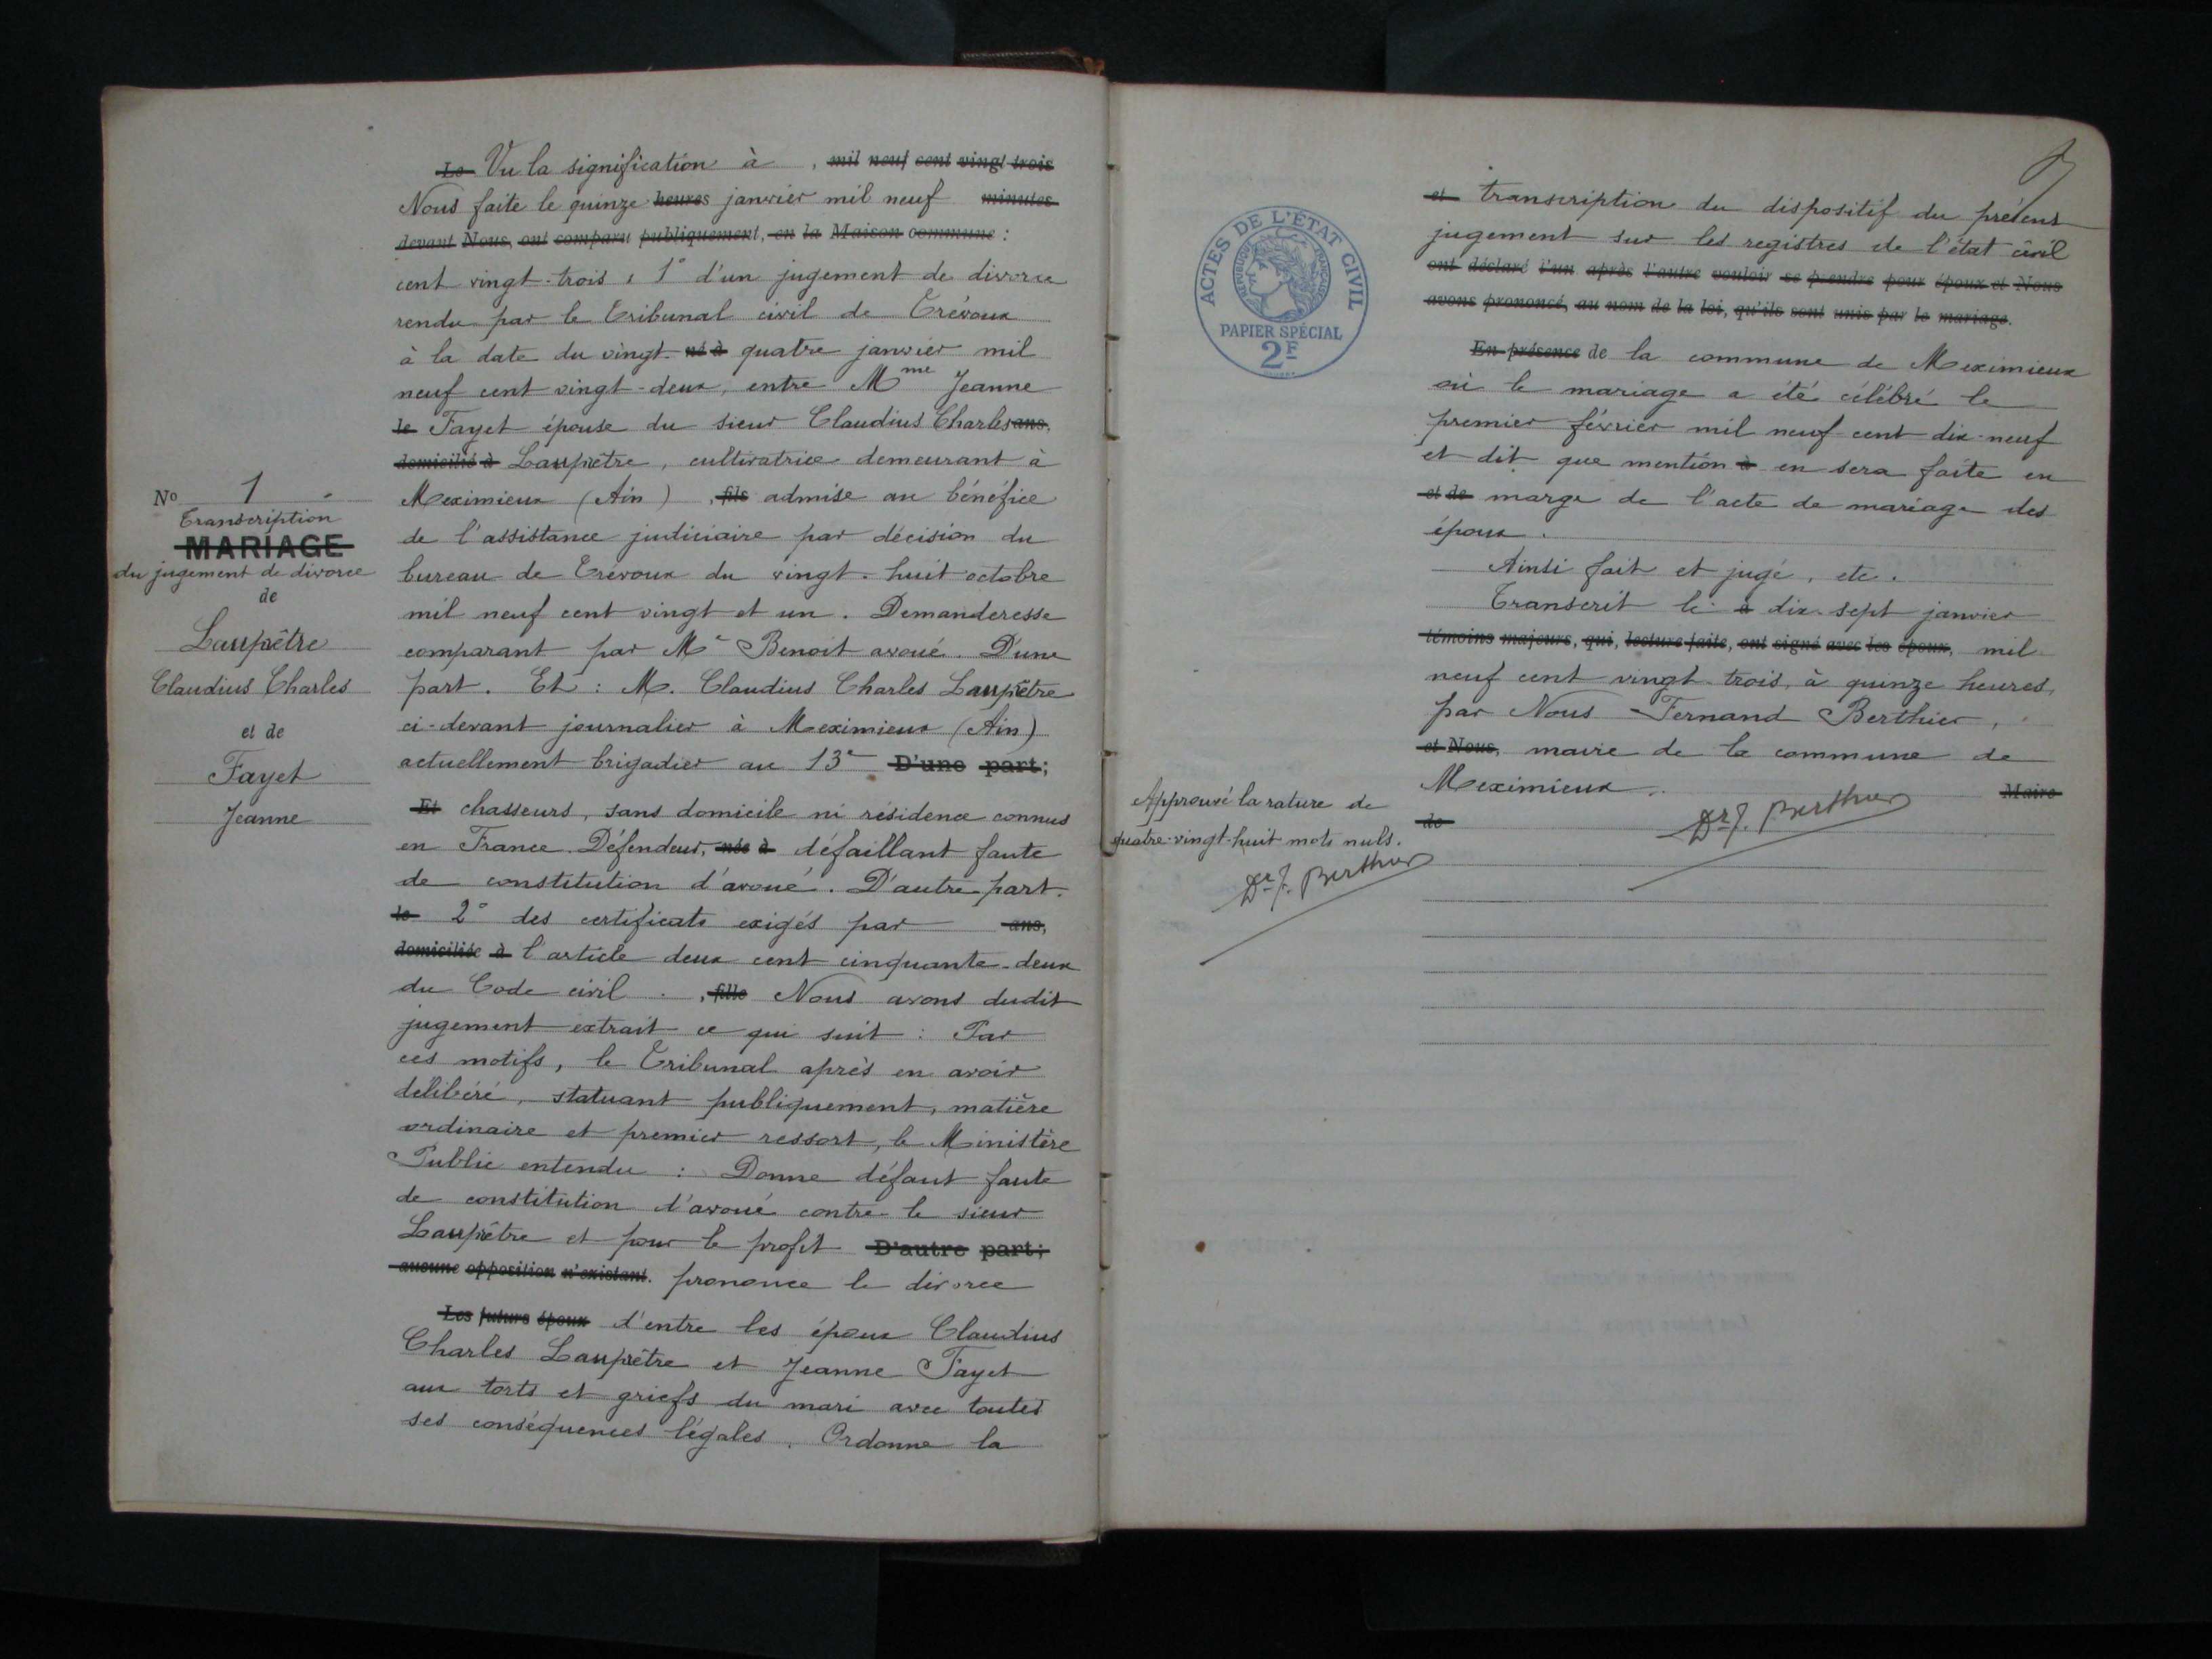 Nº 1
Transcription
MARIAGE
du jugement de divorce
de
Laupêtre
Claudius Charles
et de
Fayet
Jeanne
Le Vu la signification à , mil neuf cent vingt trois
Nous faite le quinze heures janvier mil neuf minutes
devant Nous, ont comparu publiquement, en la Maison commune :
cent vingt-trois : 1º d'un jugement de divorce
rendu par le Tribunal civil de Trévoux
à la date du vingt- né à quatre janvier mil
neuf cent vingt-deux, entre Mme Jeanne
le Fayet épouse du sieur Claudius Charles ans,
domicilié à Laupêtre, cultivatrice demeurant à
Meximieux (Ain) , fils admise au bénéfice
de l'assistance judiciaire par décision du
bureau de Trévoux du vingt-huit octobre
mil neuf cent vingt et un. Demanderesse
comparant par Me Benoit avoué. D'une
part. Et : M. Claudius Charles Laupêtre
ci-devant journalier à Meximieux (Ain)
actuellement brigadier au 13e D'une part;
Et chasseurs, sans domicile ni résidence connus
en France. Défendeur, née à défaillant faute
de constitution d'avoué. D'autre part.
le 2º des certificats exigés par ans,
domiciliée à l'article deux cent cinquante-deux
du Code civil . , fille Nous avons dudit
jugement extrait ce qui suit : Par
ces motifs, le Tribunal après en avoir
délibéré, statuant publiquement, matière
ordinaire et premier ressort, le Ministère
Public entendu : Donne défaut faute
de constitution d'avoué contre le sieur
Laupêtre et pour le profit D'autre part;
aucune opposition n'existant. prononce le divorce
Les futurs époux d'entre les époux Claudius
Charles Laupêtre et Jeanne Fayet
aux torts et griefs du mari avec toutes
ses conséquences légales. Ordonne la
ACTES DE L'ÉTAT CIVIL
RÉPUBLIQUE FRANÇAISE
PAPIER SPÉCIAL
2F
et transcription du dispositif du présent
jugement sur les registres de l'état civil
ont déclaré l'un après l'autre vouloir se prendre pour époux et Nous
avons prononcé, au nom de la loi, qu'ils sont unis par le mariage.
En présence de la commune de Meximieux
où le mariage a été célébré le
premier février mil neuf cent dix-neuf
et dit que mention à en sera faite en
et de marge de l'acte de mariage des
époux.
Ainsi fait et jugé, etc.
Transcrit le à dix-sept janvier
témoins majeurs, qui, lecture faite, ont signé avec les époux, mil
neuf cent vingt-trois, à quinze heures,
par Nous Fernand Berthier,
et Nous, maire de la commune de
Meximieux. Maire
de Dr F. Berthier
Approuvé la rature de
quatre-vingt-huit mots nuls.
Dr F. Berthier